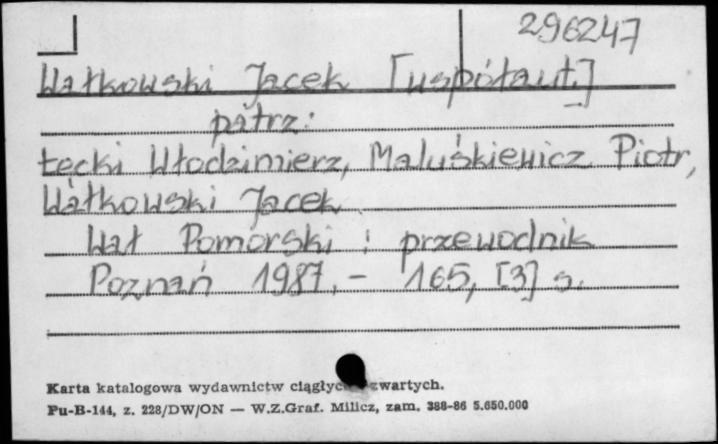 296247
Wałkowski Jacek [współaut.]
patrz:
Łęcki Włodzimierz, Maluśkiewicz Piotr,
Wałkowski Jacek
Wał Pomorski : przewodnik
Poznań 1987. - 165, [3] s.
Karta katalogowa wydawnictw ciągłyc zwartych.
Pu-B-144, z. 228/DW/ON — W.Z.Graf. Milicz, zam. 388-86 5.650.000